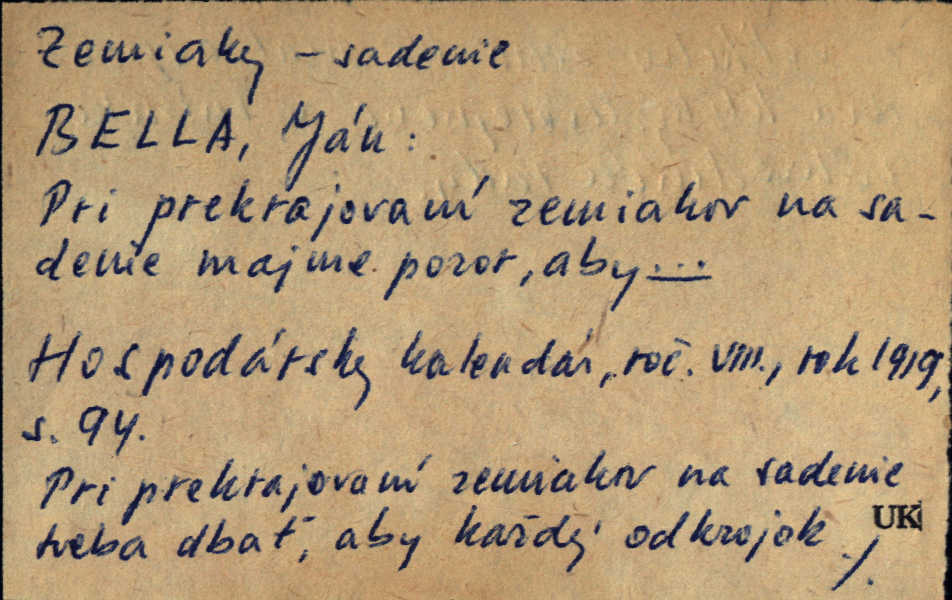 Zemiaky - sadenie
BELLA, Ján:
Pri prekrajovaní zemiakov na sa-
denie majme pozor, aby...
Hospodársky kalendár, roč. VIII., rok 1919,
s. 94.
Pri prekrajovaní zemiakov na sadenie
treba dbať, aby každý odkrojok ./.
UK